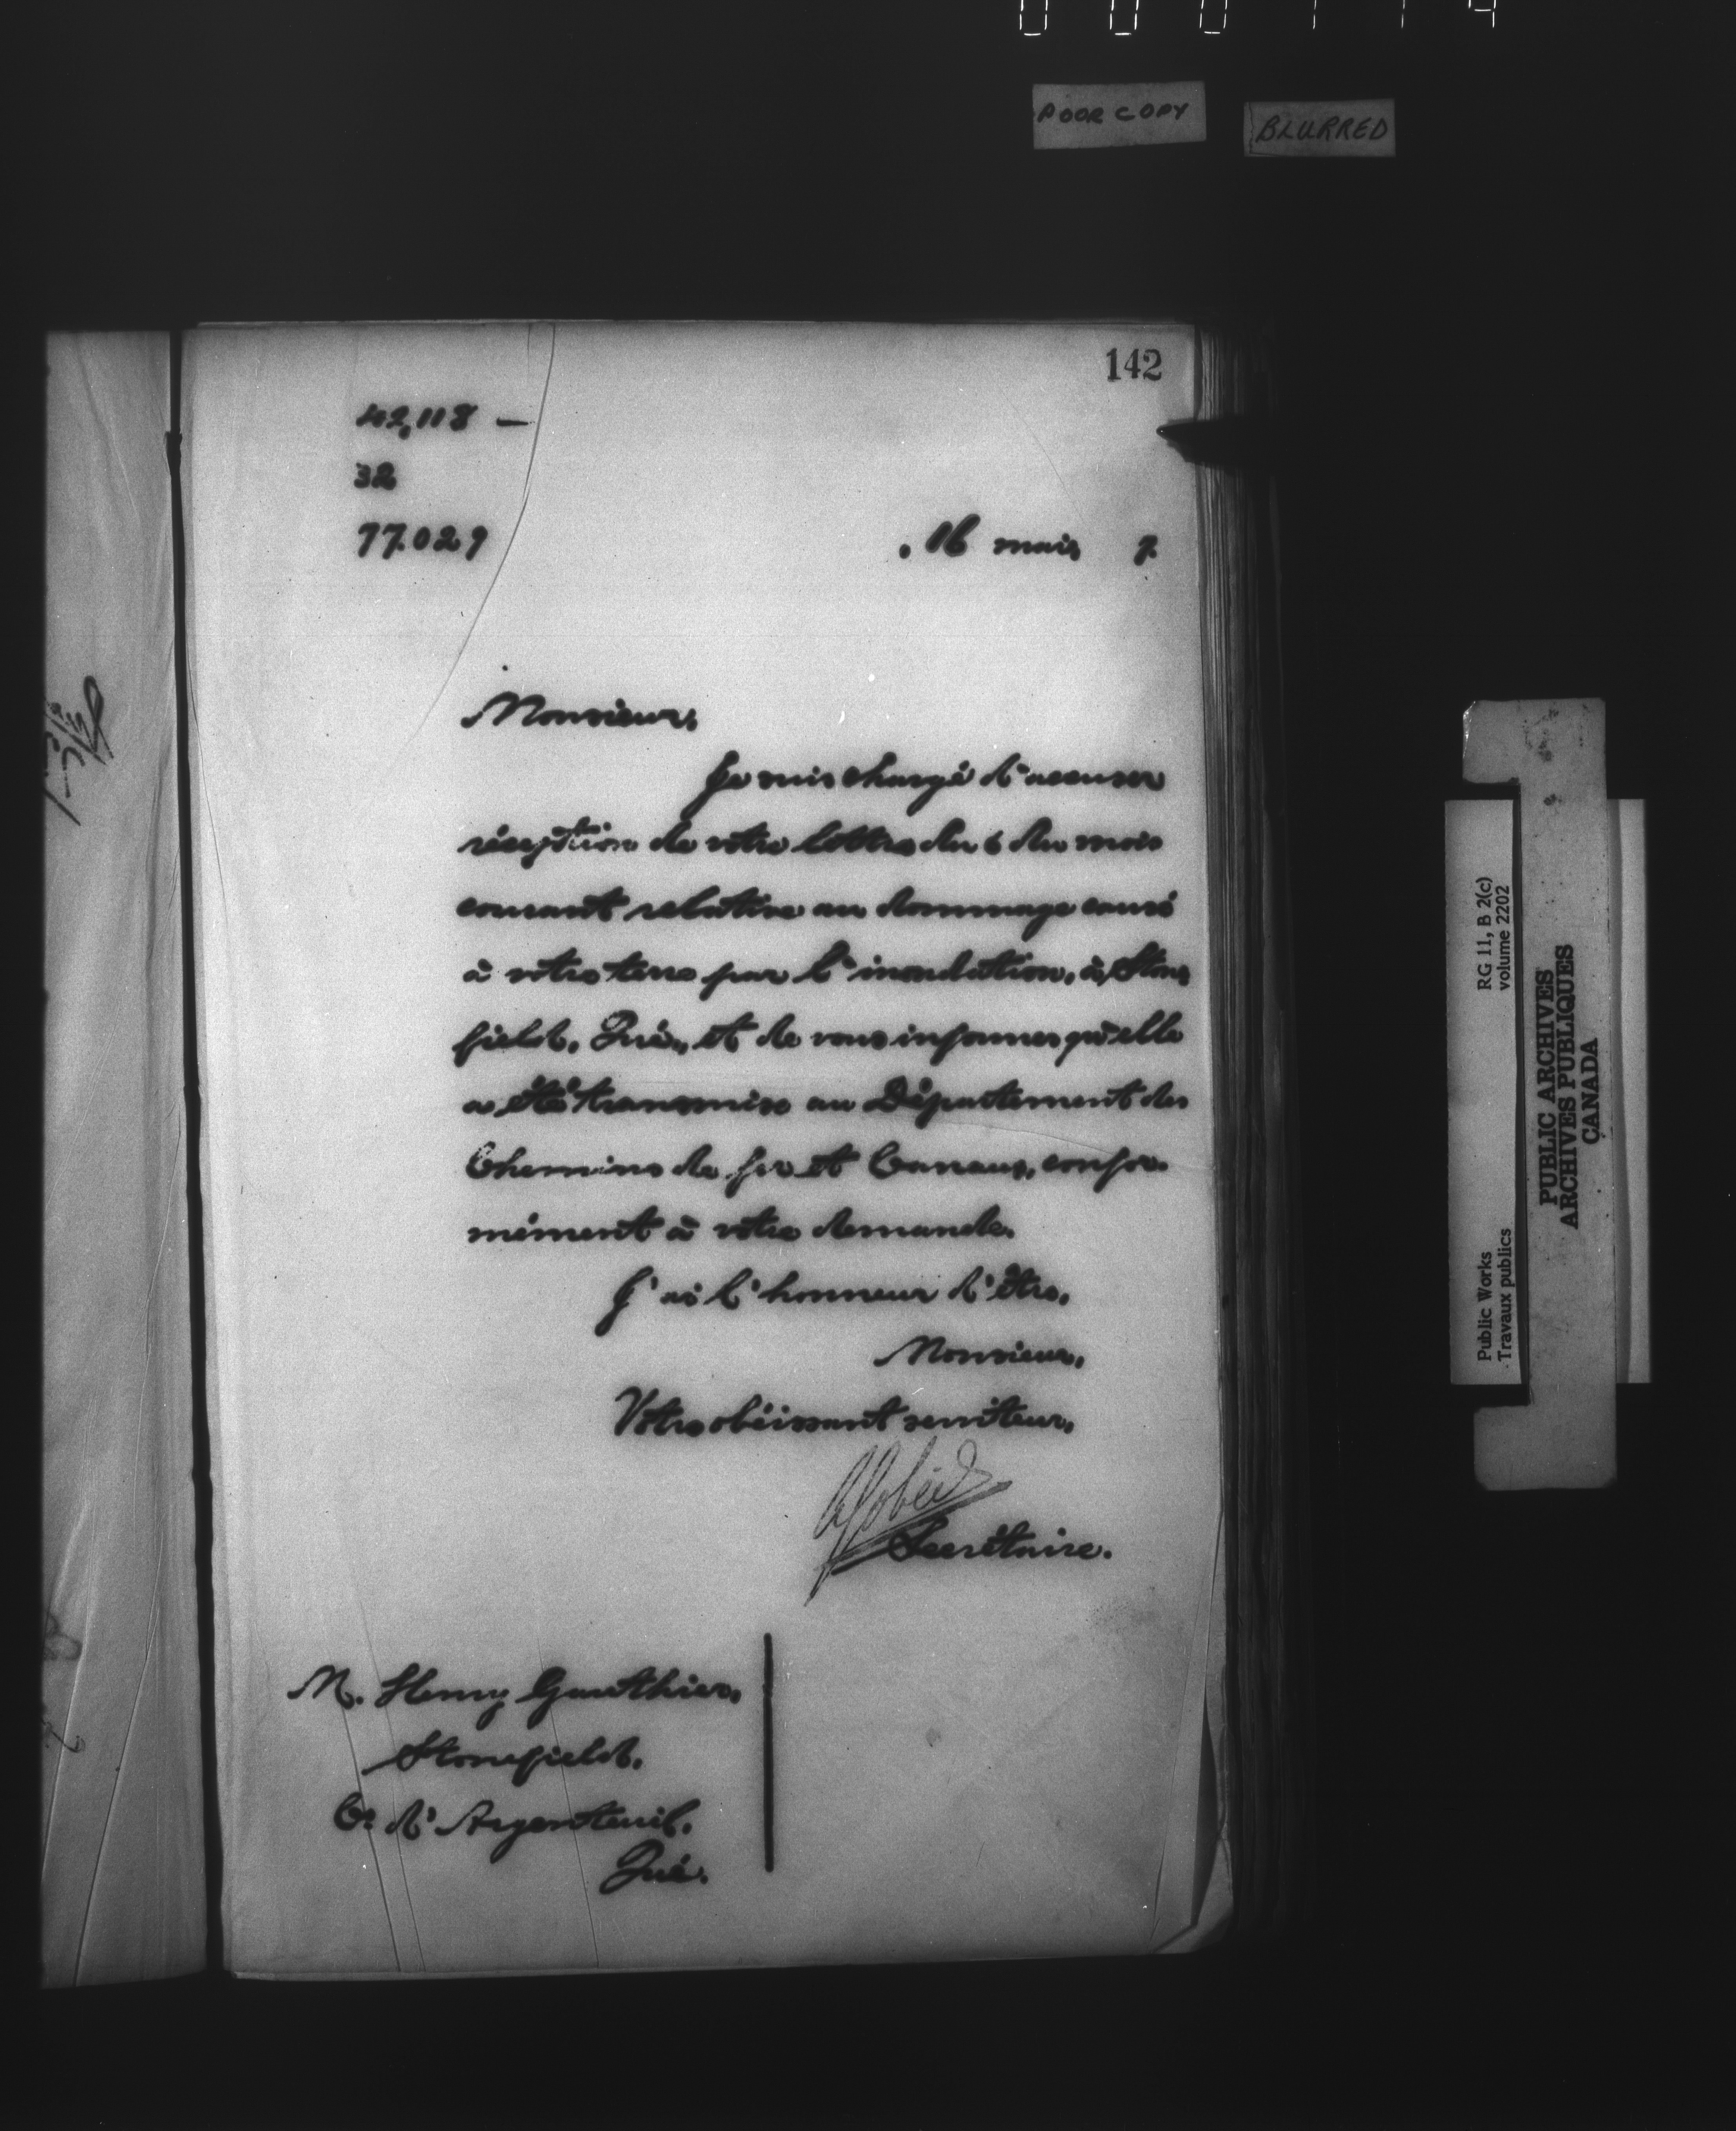 POOR COPY
BLURRED
142
42,118 —
32
77.029
16 mars 7.
Monsieur,
Je suis chargé d'accuser
réception de votre lettre du 6 du mois
courant relative au dommage causé
à votre terre par l'inondation, à Stone
field, Qué., et de vous informer qu'elle
a été transmise au Département des
Chemins de fer et Canaux, confor-
mément à votre demande.
J'ai l'honneur d'être,
Monsieur,
Votre obéissant serviteur,
Secrétaire.
M. Henry Gauthier,
Stonefield,
Co. d'Argenteuil,
Qué.
Public Works
Travaux publics
RG 11, B 2(c)
volume 2202
PUBLIC ARCHIVES
ARCHIVES PUBLIQUES
CANADA